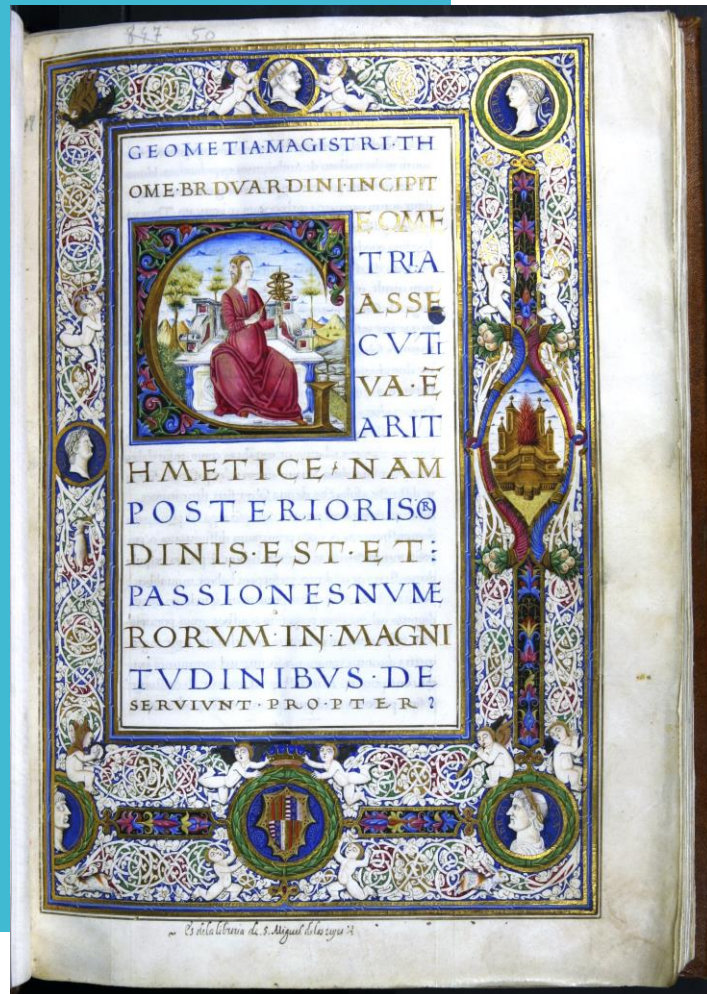 847 50
GEOMETIA·MAGISTRI·TH
OME·BRDVARDINI·INCIPIT
GEOME
TRIA
ASSE
CVTI
VA·Ē
ARIT
HMETICE·NAM
POSTERIORIS®
DINIS·EST·ET:
PASSIONESNVME
RORVM·IN·MAGNI
TVDINIBVS·DE
SERVIVNT·PRO·PTER?
Es dela libreria de S. Miguel delos reyes